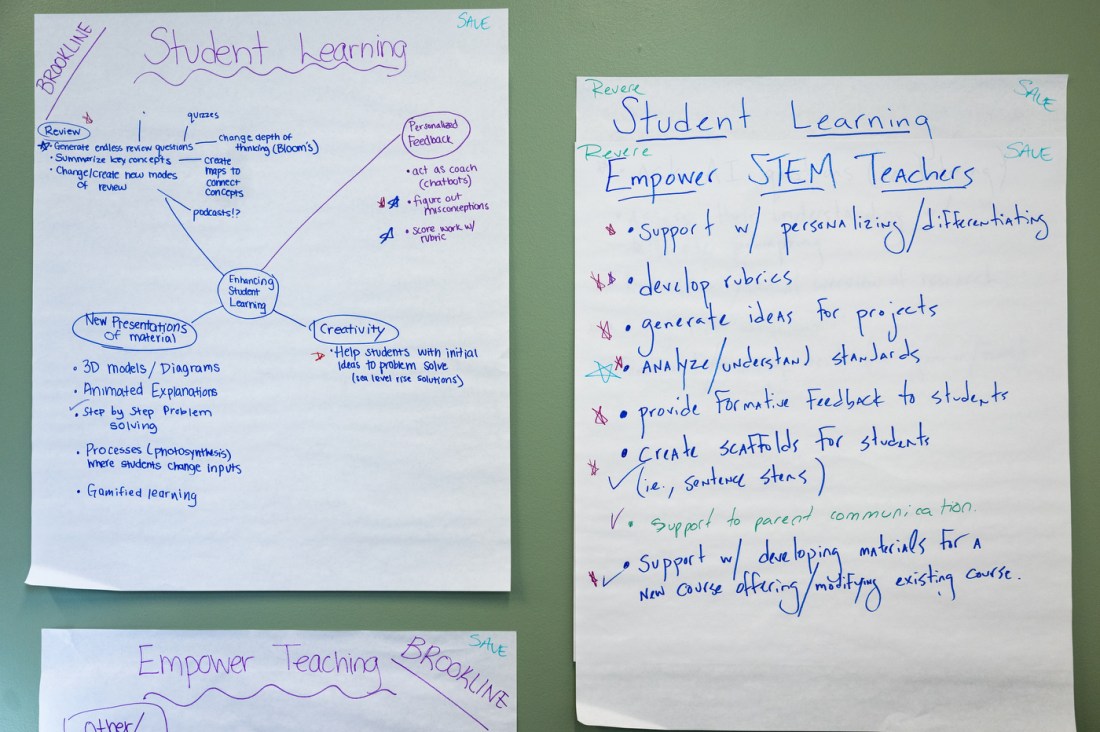 BROOKLINE
SAVE
Student Learning
Review
quizzes
• Generate endless review questions
change depth of
thinking (Bloom's)
• Summarize key concepts
create
maps to
connect
concepts
• Change/create new modes
of review
podcasts!?
Personalized
Feedback
• act as coach
(chatbots)
• figure out
misconceptions
• score work w/
rubric
Enhancing
Student
Learning
New Presentations
of material
• 3D models / Diagrams
• Animated Explanations
• Step by Step Problem
solving
• Processes (photosynthesis)
where students change inputs
• Gamified learning
Creativity
• Help students with initial
ideas to problem solve
(sea level rise solutions)
Empower Teaching
BROOKLINE
SAVE
Other/
Revere
SAVE
Student Learning
Revere
SAVE
Empower STEM Teachers
• Support w/ personalizing/differentiating
• develop rubrics
• generate ideas for projects
• Analyze/understand standards
• provide formative feedback to students
• Create scaffolds for students
(ie., sentence stems)
• Support to parent communication.
• Support w/ developing materials for a
new course offering/modifying existing course.